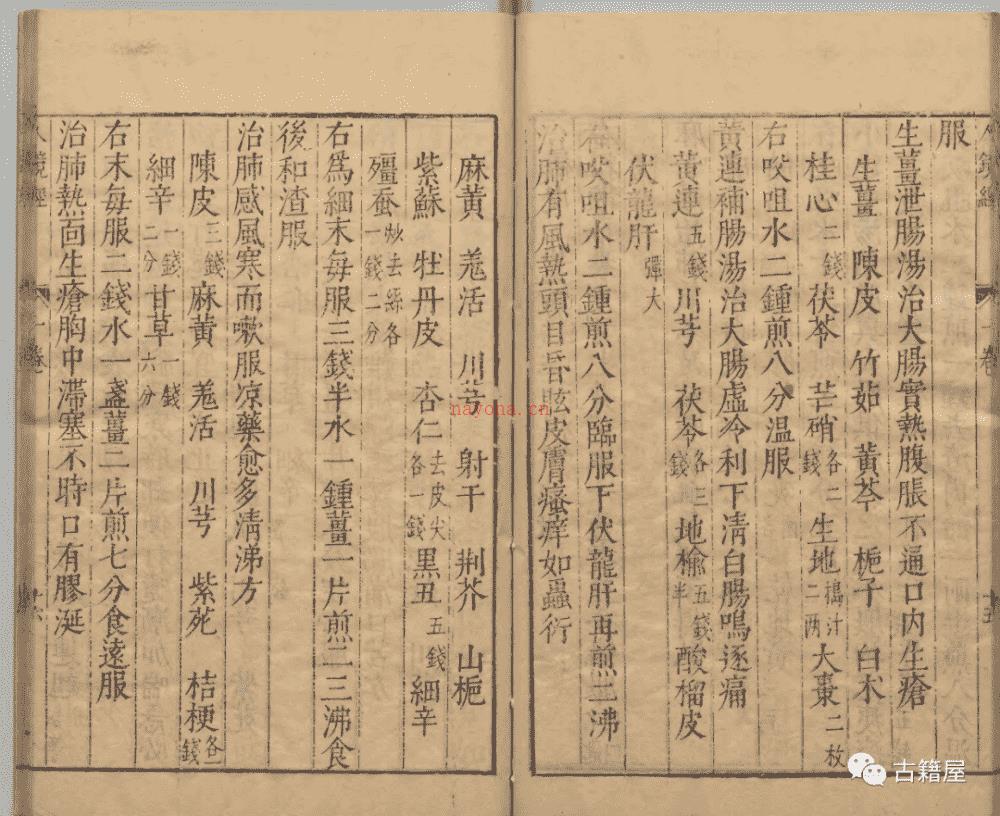 服
生薑泄腸湯治大腸實熱腹脹不通口內生瘡
生薑 陳皮 竹茹 黃芩 梔子 白术
桂心二錢 茯苓 芒硝各二錢 生地擣汁二兩 大棗二枚
右㕮咀水二鍾煎八分温服
黃連補腸湯治大腸虛冷利下淸白腸鳴逐痛
黃連五錢 川芎 茯苓各三錢 地榆五錢半 酸榴皮
伏龍肝彈大
右㕮咀水二鍾煎八分臨服下伏龍肝再煎二沸
治肺有風熱頭目昏眩皮膚瘙痒如蟲行
麻黃 羗活 川芎 射干 荆芥 山梔
紫蘇 牡丹皮 杏仁去皮尖各一錢 黑丑五錢 細辛
殭蚕炒去絲各一錢二分
右爲細末每服三錢半水一鍾薑一片煎二三沸食
後和渣服
治肺感風寒而嗽服凉藥愈多淸涕方
陳皮三錢 麻黃 羗活 川芎 紫苑 桔梗各一錢
細辛一錢二分 甘草一錢六分
右末每服二錢水一盞薑二片煎七分食遠服
治肺熱面生瘡胸中滯塞不時口有膠涎
人鏡經
十卷
nayona.cn
古籍屋